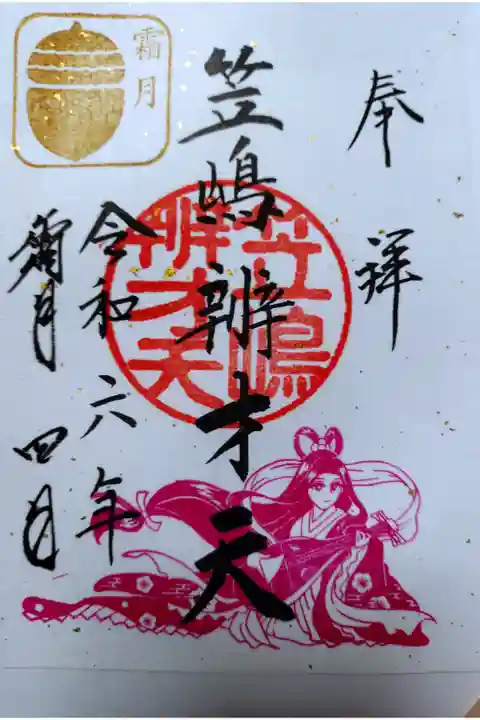 奉拝
笠嶋辨才天
笠嶋
辨才天
令和六年
霜月四日
霜月